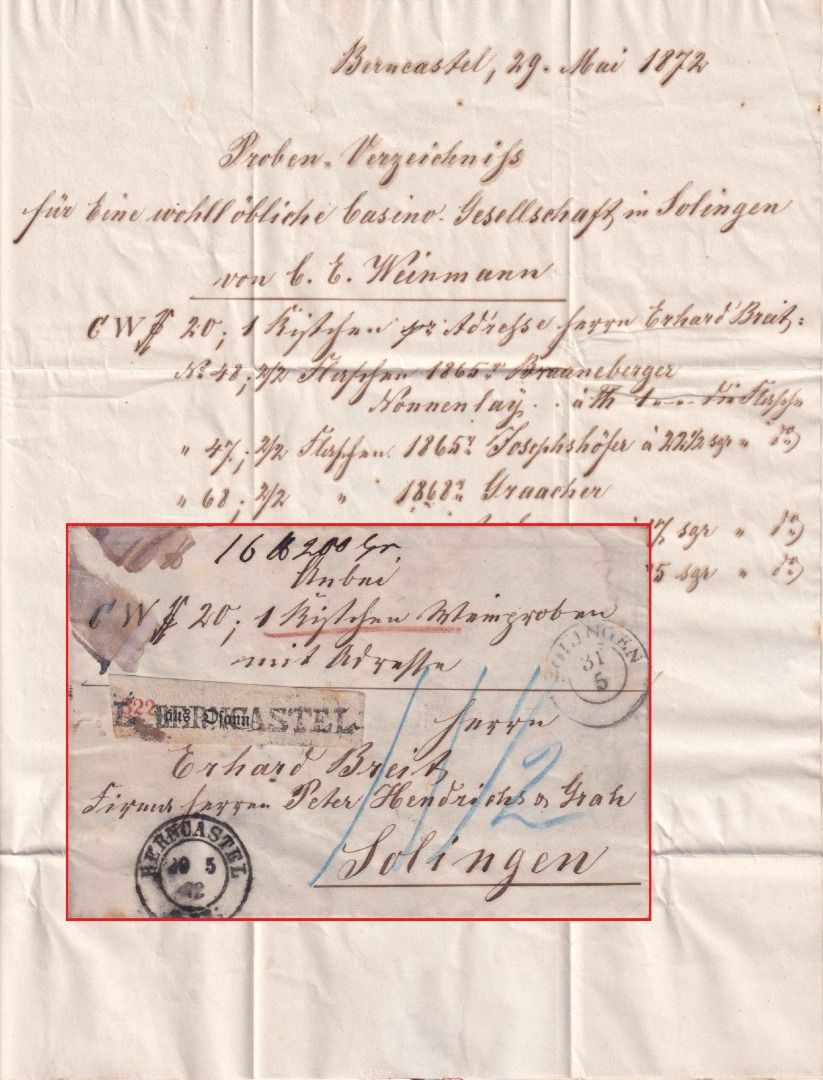 Berncastel, 29. Mai 1872
Proben-Verzeichniss
für Eine wohllöbliche Casino-Gesellschaft in Solingen
von C. E. Weinmann
CW 20; 1 Kistchen pr Adresse Herrn Erhard Breit:
No 48; 2/2 Flaschen 1865r Brauneberger
Nonnenlay . . à Th 1 -.- die Flasche
" 47; 2/2 Flaschen 1865r Josephshöfer à 22 1/2 sgr " do)
" 68; 2/2 " 1868r Graacher
17 sgr " do)
5 sgr " do)
16 ℔ 200 Gr.
Anbei
CW 20; 1 Kistchen Weinproben
mit Adresse
SOLINGEN
31
5
22 aus Osann
BERNCASTEL
Herrn
Erhard Breit
Firma Herren Peter Hendrichs & Grah
Solingen
BERNCASTEL
5